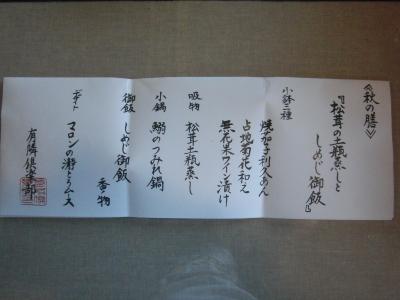 《秋の膳》
『松茸の土瓶蒸しと
しめじ御飯』
小鉢三種
焼茄子利久あん
占地菊花和え
無花果ワイン漬け
吸物 松茸土瓶蒸し
小鍋 鰯のつみれ鍋
御飯 しめじ御飯
香の物
デザート マロンの瀞とミルース
有隣倶楽部